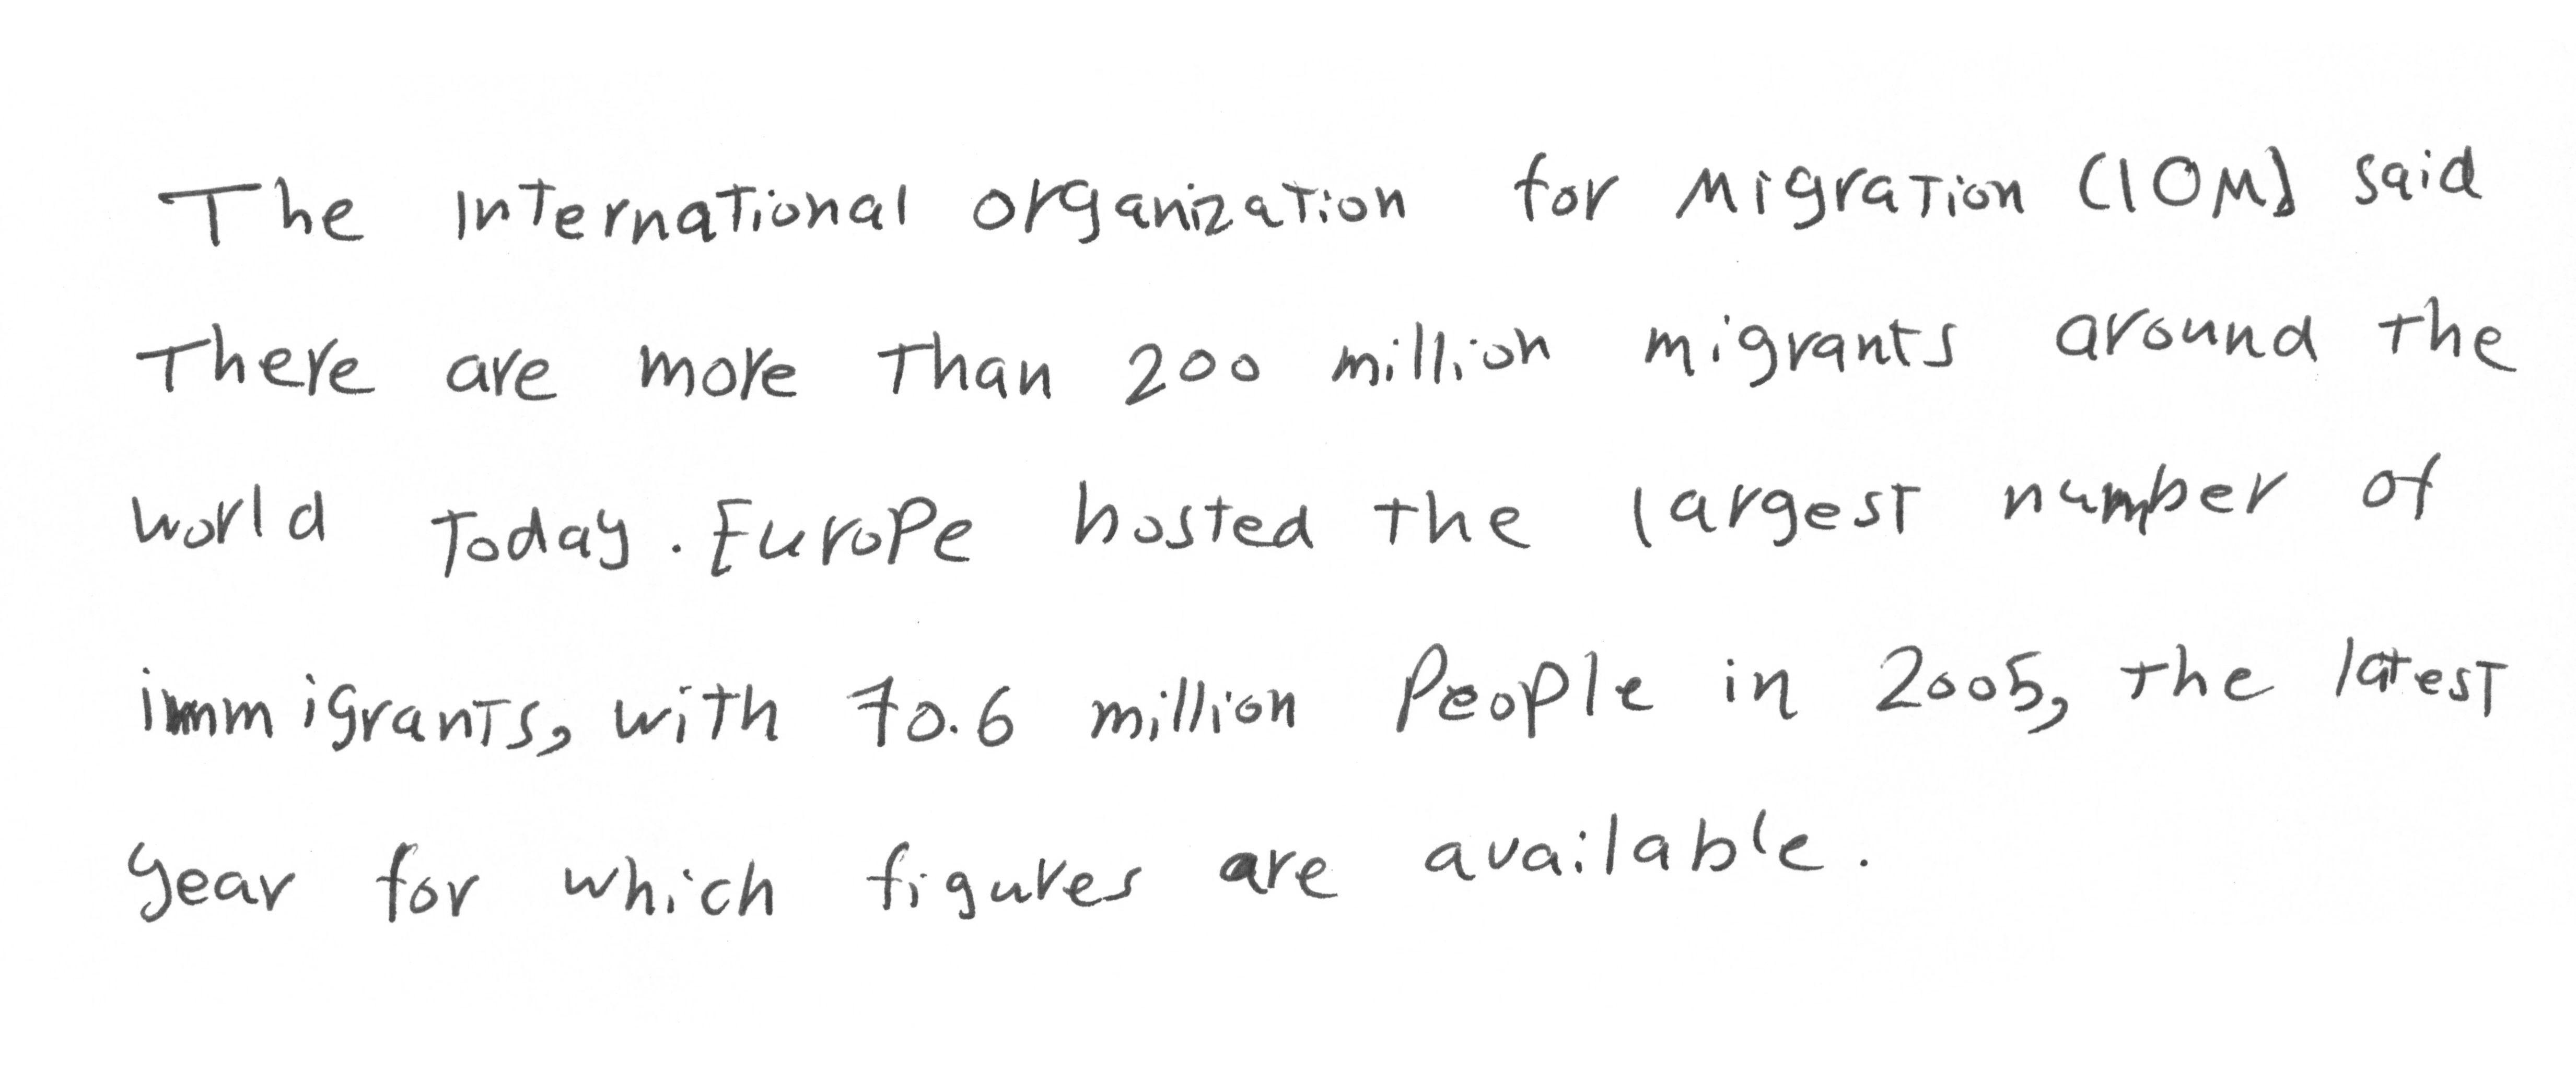 The International organization for Migration (IOM) said
There are more Than 200 million migrants around the
world Today. Europe hosted the largest number of
immigrants, with 70.6 million People in 2005, the latest
year for which figures are available.